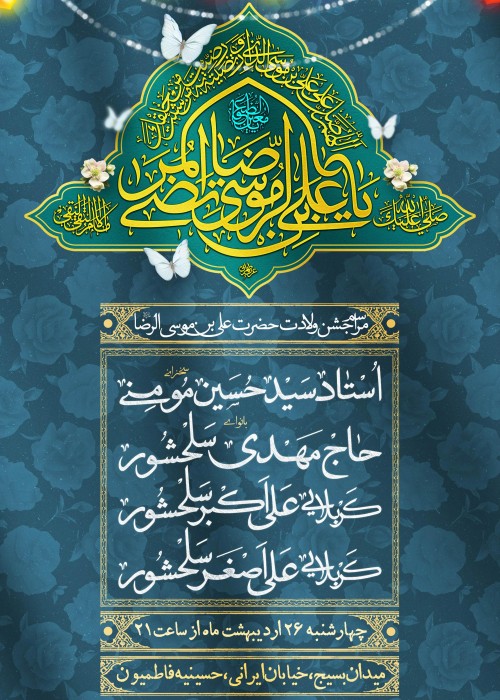 یا علی بن موسی الرضا المرتضی
صلی الله علیک
مراسم جشن ولادت حضرت علی بن موسی الرضا
سخنرانی
استاد سید حسین مومنی
بانوای
حاج مهدی سلحشور
کربلایی علی اکبر سلحشور
کربلایی علی اصغر سلحشور
چهارشنبه ۲۶ اردیبهشت ماه از ساعت ۲۱
میدان بسیج، خیابان ایرانی، حسینیه فاطمیون